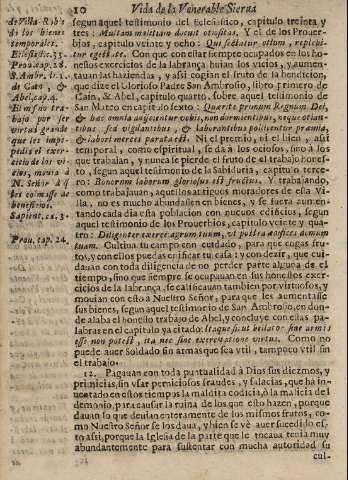 10 Vida de la Venerable Sierua
segun aquel testimonio del Eclesiastico, capitulo treinta y
tres: Multam malitiam docuit otiositas. Y el de los Prouer-
bios, capitulo veinte y ocho: Qui sectatur otium, replebi-
tur egestate. Con que con estar siempre ocupados en los ho-
nestos exercicios de la labrança huian los vicios, y aumen-
tauan las haziendas, y assi cogian el fruto de la bendicion,
que dize el glorioso Padre San Ambrosio, libro primero de
Cain, & Abel, capitulo quarto, sobre aquel testimonio de
San Mateo en capitulo sexto: Quærite primum Regnum Dei,
& hæc omnia adijcientur vobis, non dormientibus, neque otian-
tibus sed vigilantibus, & laborantibus pollicentur præmia,
& labori merces parata est. Ni el premio, ni el bien, assi
temporal, como espiritual, se dà a los ociosos, sino à los
que trabajan, y nunca se pierde el fruto de el trabajo hones-
to, segun aquel testimonio de la Sabiduria, capitulo terce-
ro: Bonorum laborum gloriosus est fructus. Y trabajando,
como trabajauan, aquellos antiguos moradores de esta Vi-
lla, no es mucho abundassen en bienes, y se fuera aumen-
tando cada dia esta poblacion con nueuos edificios, segun
aquel testimonio de los Prouerbios, capitulo veinte y qua-
tro: Diligenter exerce agrum tuum, vt postea ædifices domum
tuam. Cultiua tu campo con cuidado, para que cogas fru-
tos, y con ellos puedas edificar tu casa: y con dezir, que cui-
dauan con toda diligencia de no perder parte alguna de el
tiempo, sino que siempre se ocupauan en sus honestos exer-
cicios de la labrança, se calificauan tambien por virtuosos, y
mouian con esto à Nuestro Señor, para que les aumentasse
sus bienes, segun aquel testimonio de San Ambrosio, en don-
de alaba el honesto trabajo de Abel, y concluye con estas pa-
labras en el capitulo ya citado: Itaque sicut bellator sine armis
esse non potest, ita nec sine exercitatione virtus. Como no
puede auer Soldado sin armas que sea vtil, tampoco vtil sin
el trabajo.
12. Pagauan con toda puntualidad à Dios sus diezmos, y
primicias, sin vsar perniciosos fraudes, y falacias, que ha in-
uentado en estos tiempos la maldita codicia, ò la malicia del
demonio, para causar la ruina de los que esto hazen, porque
dauan lo que deuian enteramente de los mismos frutos, co-
mo Nuestro Señor se los daua, y bien se vè auer sucedido es-
to assi, porque la Iglesia de la parte que le tocaua tenia muy
abundantemente para sustentar con mucha autoridad su
cul-
de Villa-Rubia
de los bienes
temporales.
Eclesiastic. 33.
Prou. cap. 28.
S. Ambr. li. 1.
de Cain, &
Abel, cap. 4.
Sapient. ca. 3.
Prou. cap. 24.